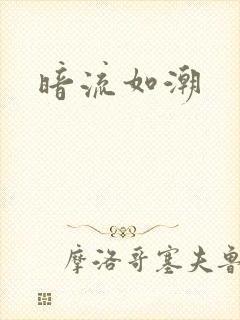 暗流如潮
摩洛哥塞夫鲁